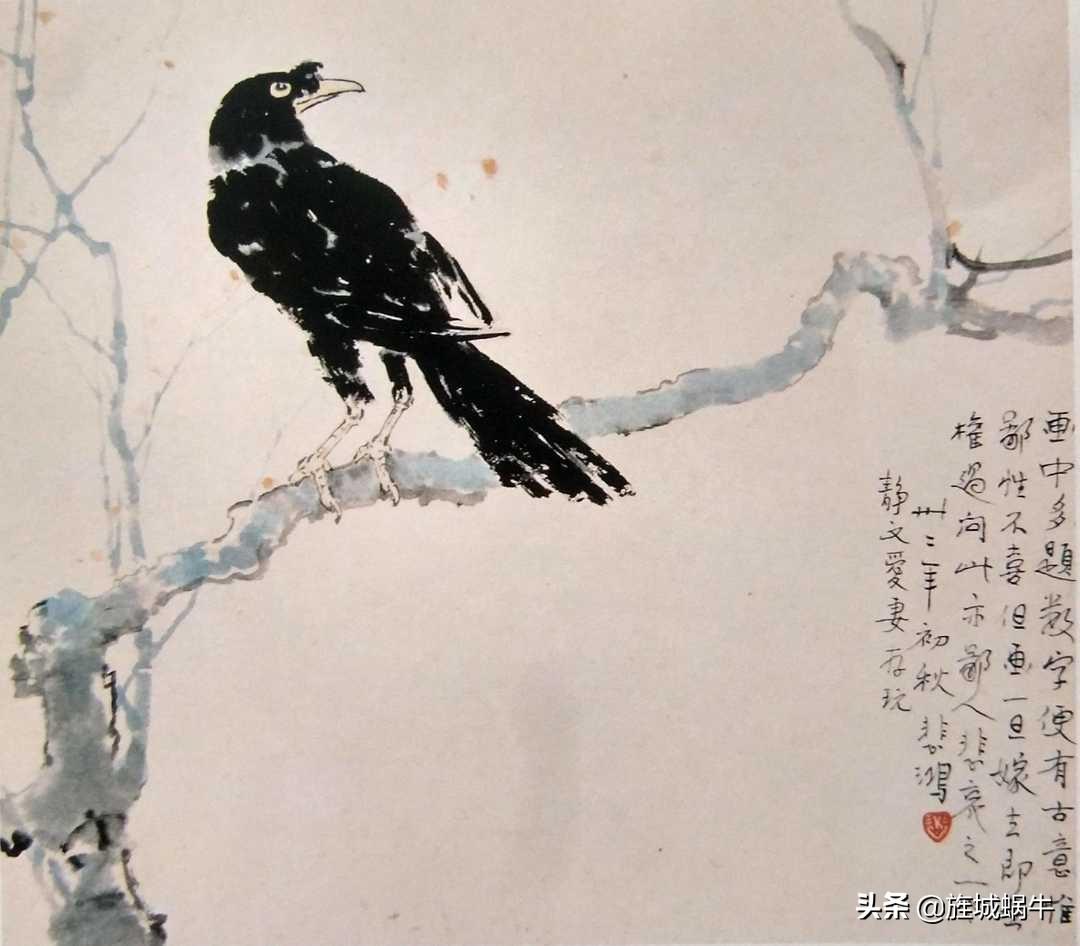 画中多題數字便有古意惟
鄙性不喜但画一旦嫁去即
權過问此亦鄙人悲哀之一
卅二年初秋 悲鴻
静文愛妻存玩
头条 @旌城蜗牛